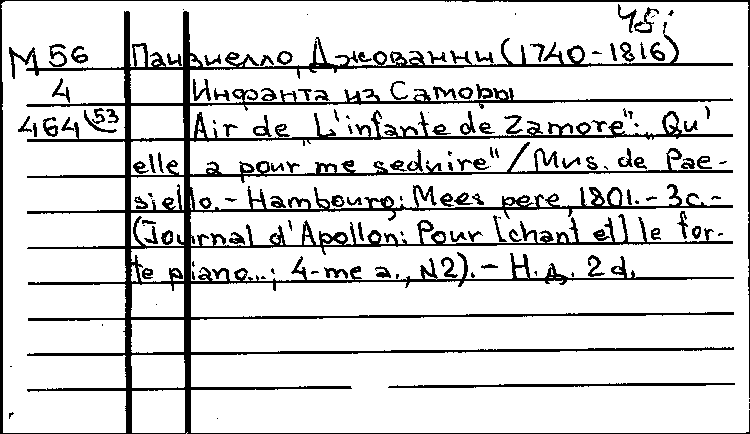 48;
М 56 Паизиелло, Джованни (1740-1816)
4 Инфанта из Саморы
464 53 Air de „L'infante de Zamore": „Qu'
elle a pour me seduire" / Mus. de Pae-
siello. - Hambourg: Mees pere, 1801. - 3с. -
(Journal d'Apollon: Pour [chant et] le for-
te piano...; 4-me a., N2). - Н.д. 2d.